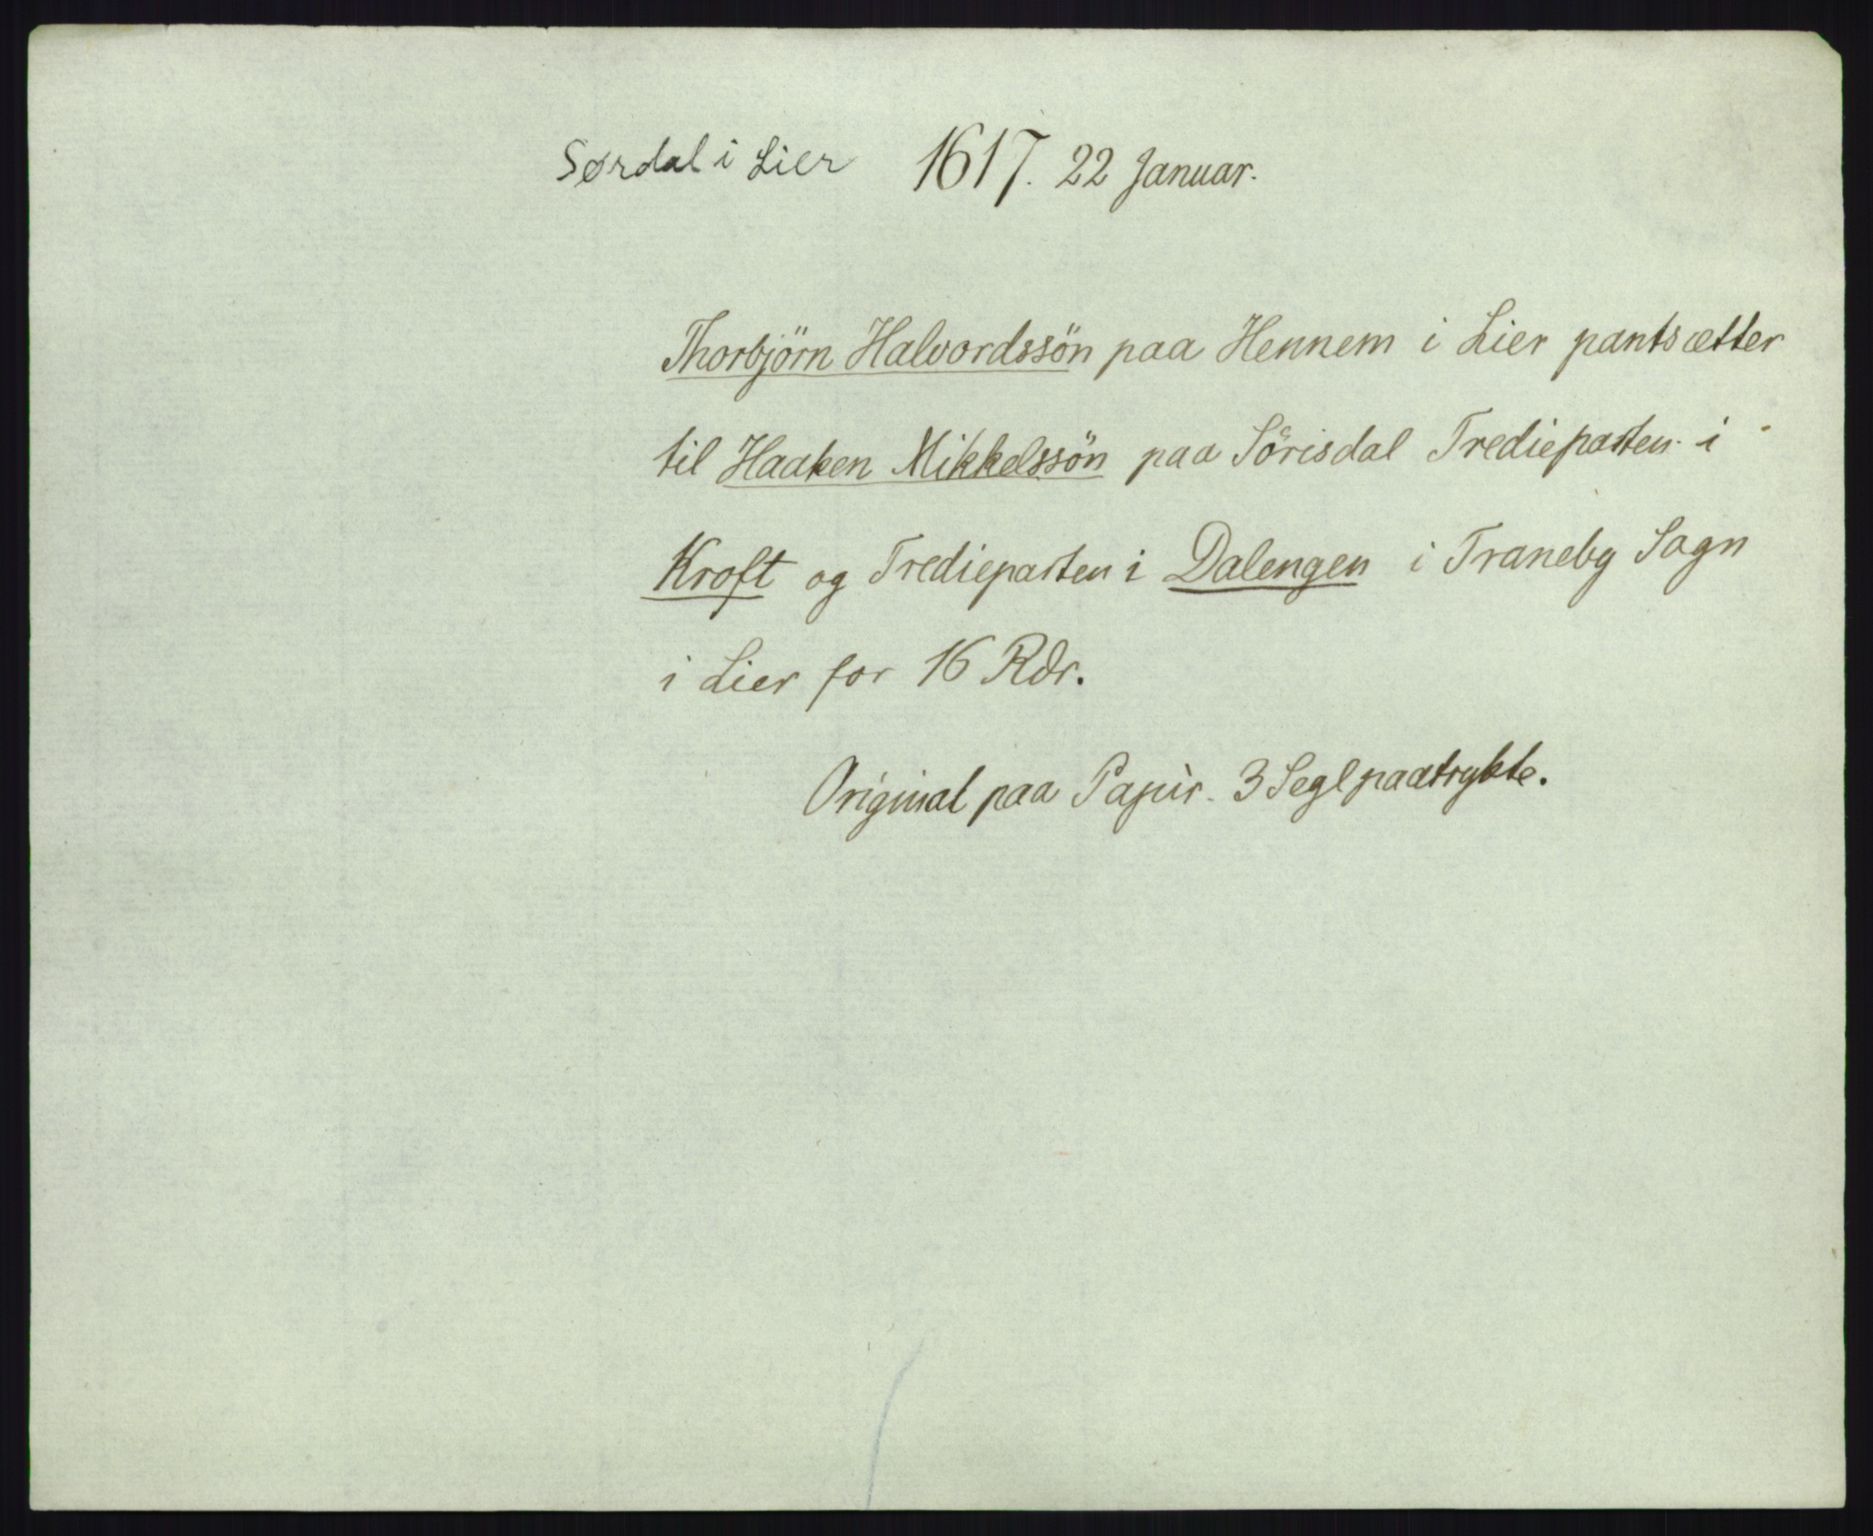 Sørdal i Lier 1617. 22 Januar.
Thorbjörn Halvordssön paa Hennem i Lier pantsætter
til Haaken Mikkelssön paa Sörisdal Trediepasten i
Kroft og Trediepasten i Dalengen i Traneby Sogn
i Lier for 16 Rdr.
Original paa Papir. 3 Segl paatrykte.